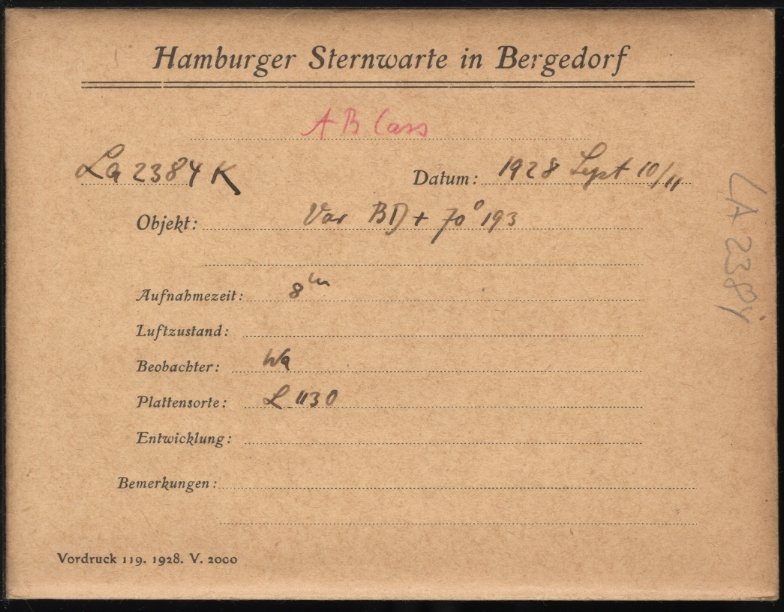 Hamburger Sternwarte in Bergedorf
AB Cass
La 2384 K
Datum: 1928 Sept 10/11
Objekt: Var BD + 70° 193
Aufnahmezeit: 8m
Luftzustand:
Beobachter: Wa
Plattensorte: L 1130
Entwicklung:
Bemerkungen:
Vordruck 119. 1928. V. 2000
LA 2384